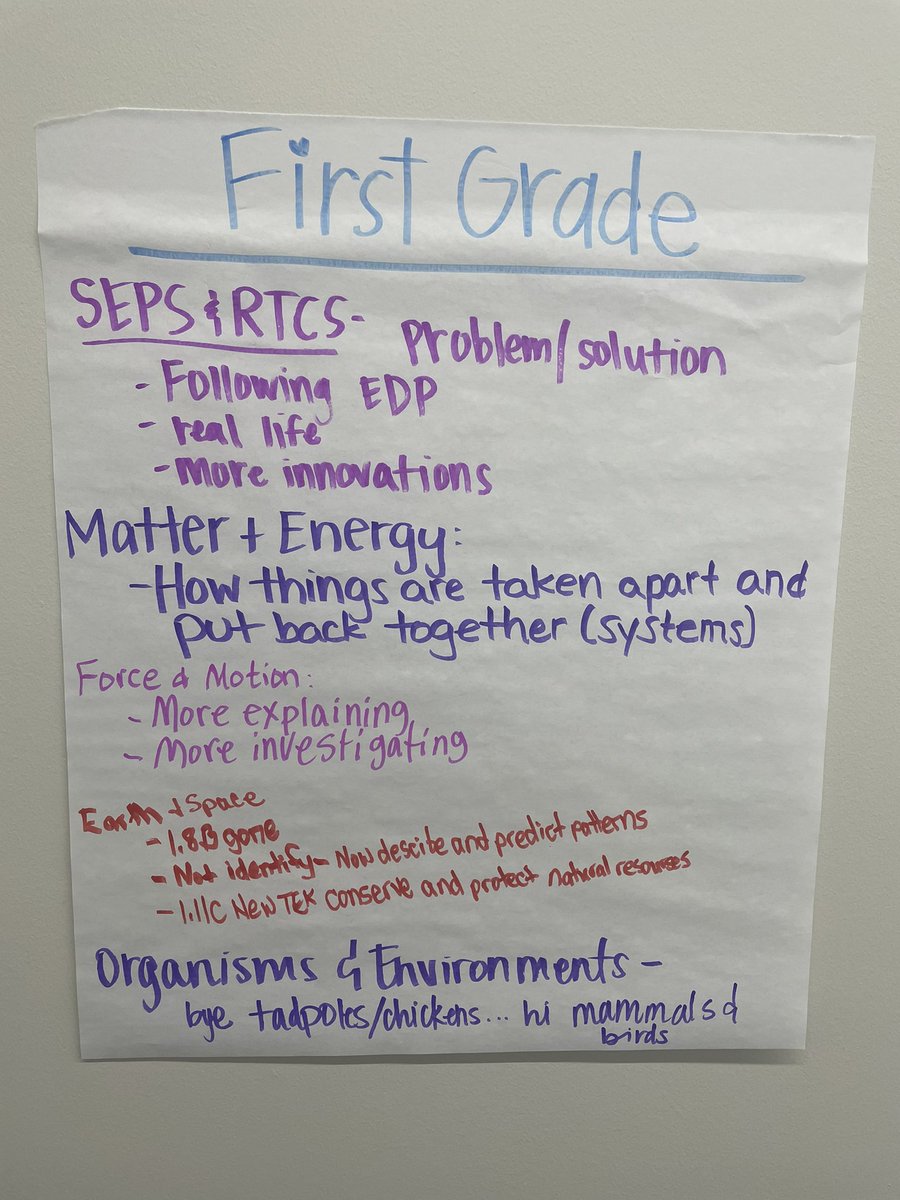 First Grade
SEPS & RTCS- Problem/solution
- Following EDP
- real life
- More innovations
Matter + Energy:
- How things are taken apart and
put back together (systems)
Force & Motion:
- More explaining
- More investigating
Earth + Space
- 1.8B gone
- Not identify - Now descibe and predict patterns
- 1.11C New TEK conserve and protect natural resources
Organisms & Environments -
bye tadpoles/chickens... hi mammals &
birds